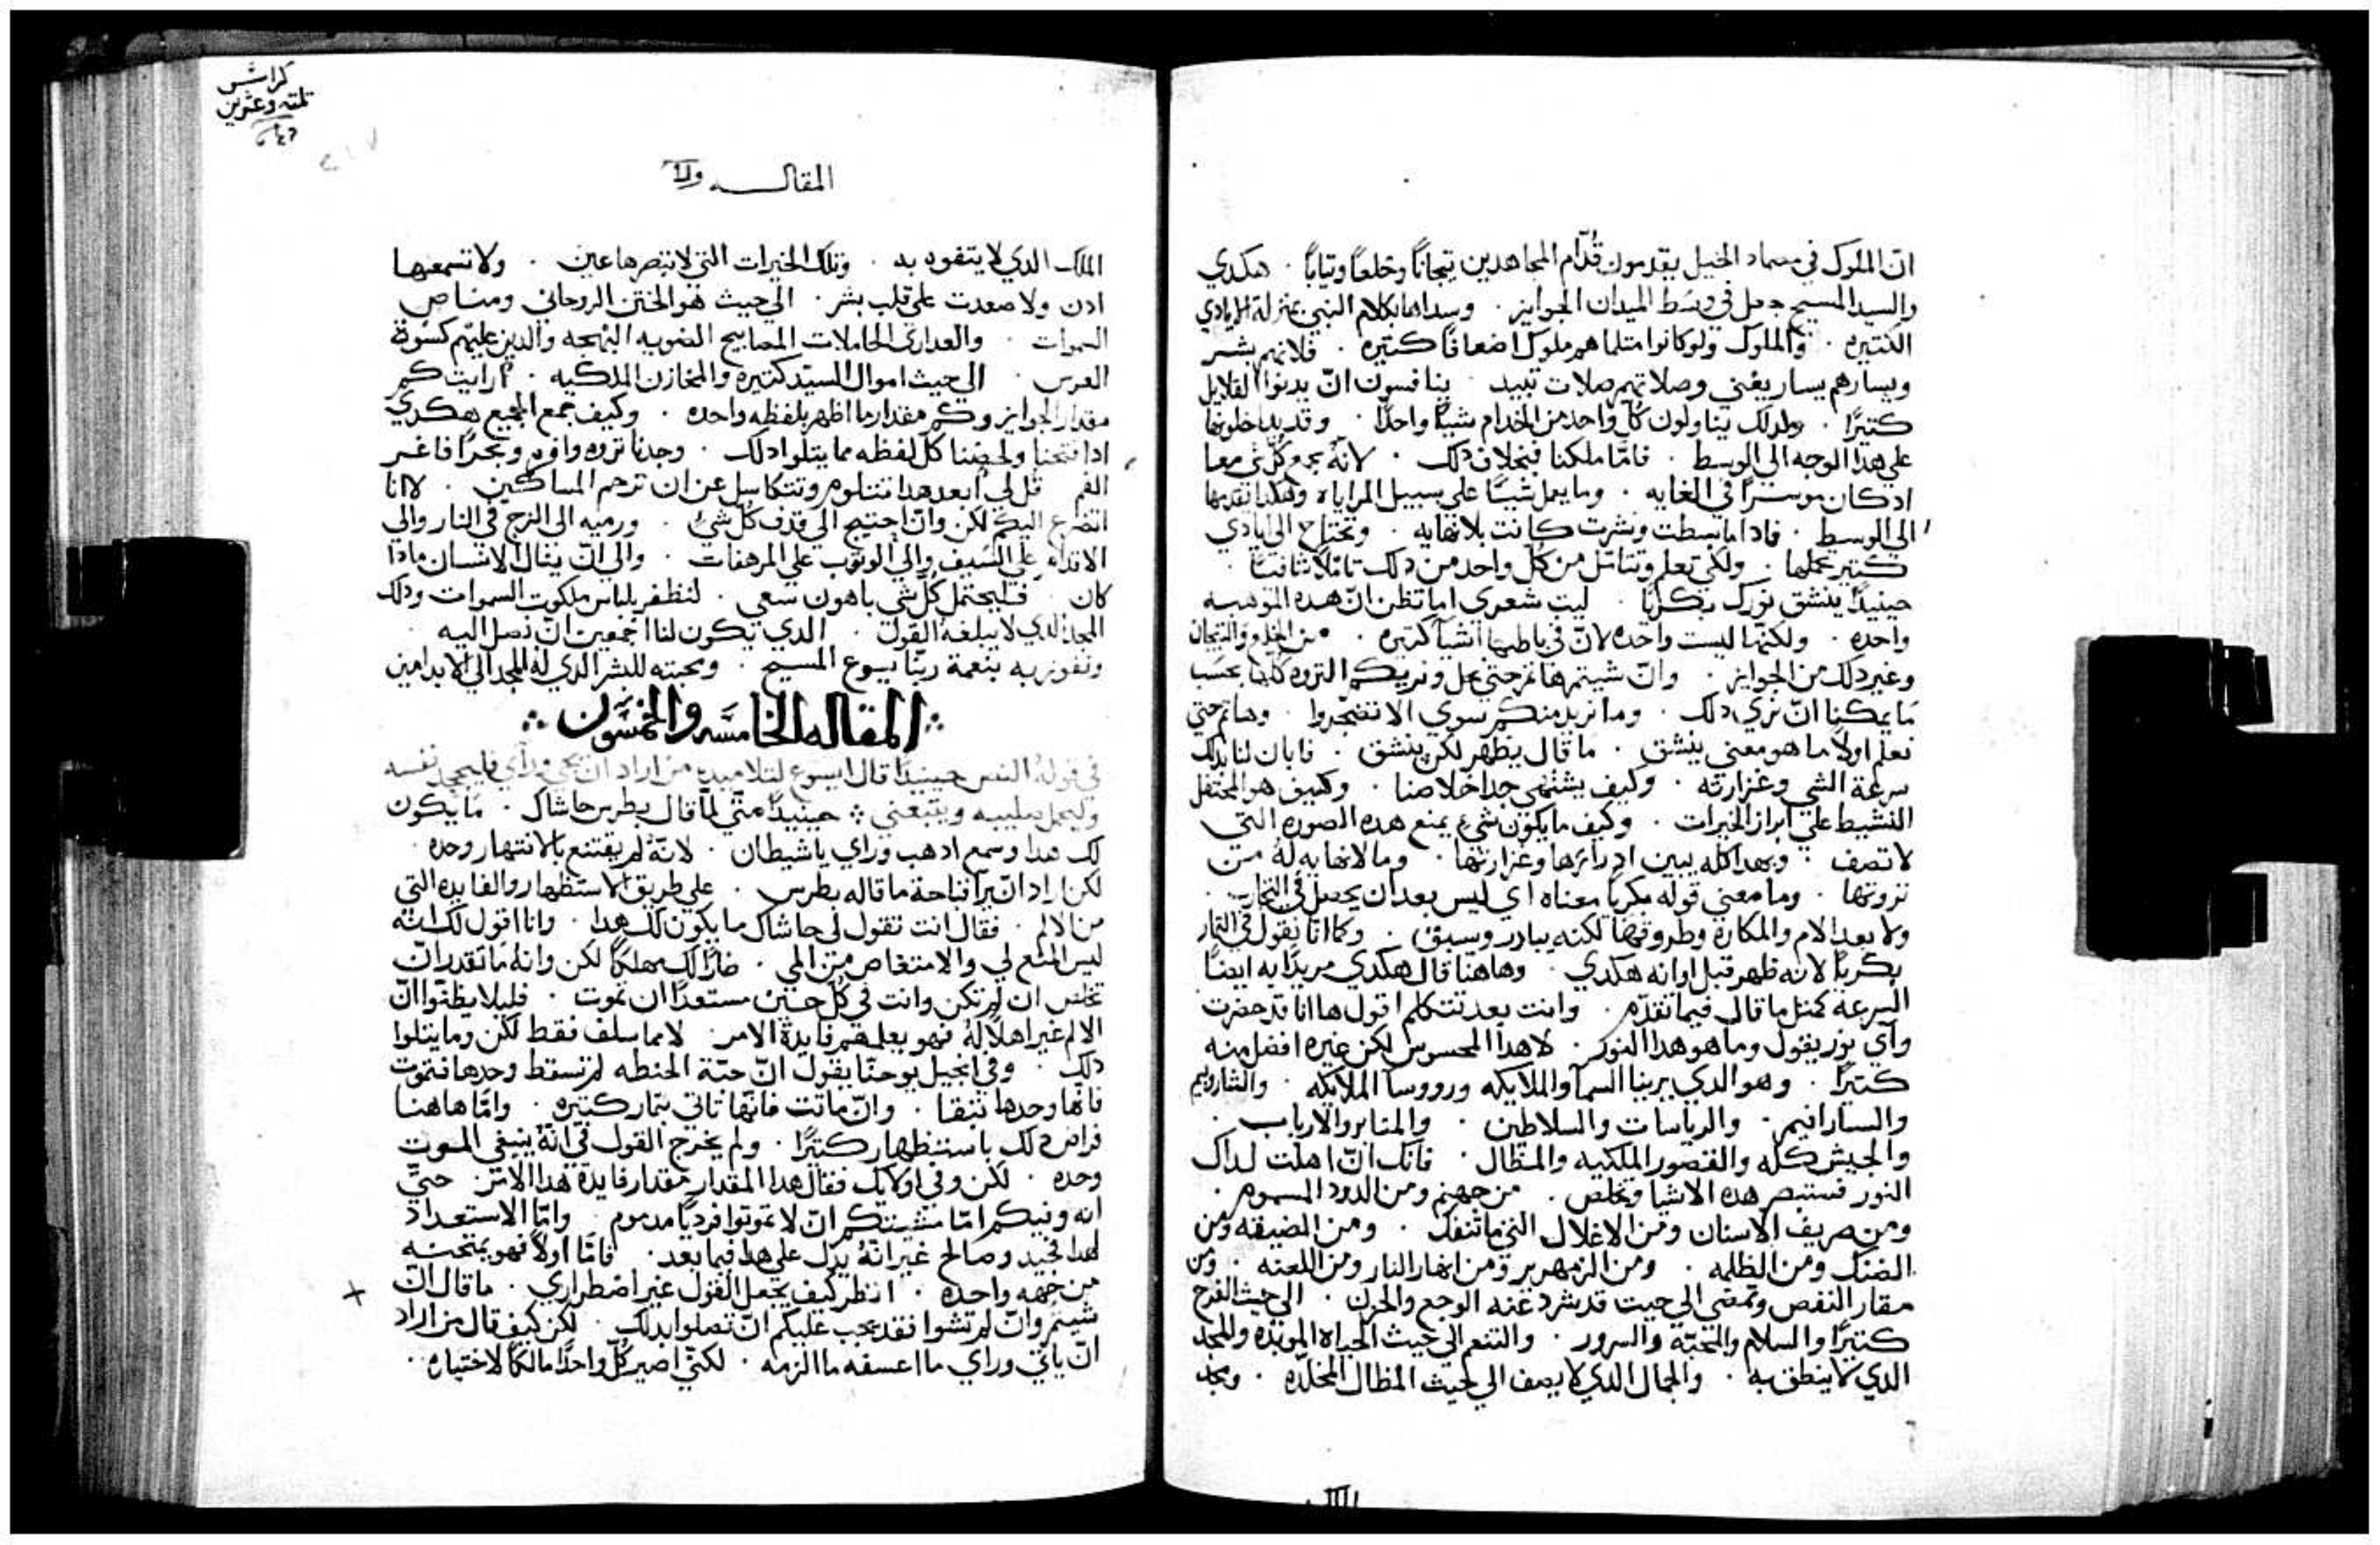 ان الملوك في مصماد الخيل يقدمون قُدّام المجاهدين تيجاناً وخلعاً وتياباً . هكدي
والسيد المسيح جعل في وسَط الميدان الجوايز . وسداها بكلام النبي بمنزلة الايادي
الكتيره . والملوك ولو كانوا متلما هم ملوك اضعافاً كتيره . فلانهم بشر
ويسارهم يسار يفني وصلاتهم صلات تبيد . ينافسون انّ يدنوا القلايل
كتيرًا . ولدلك يناولون كلّ واحد من الخدام شيئًا واحدًا . وقد يدخلونها
علي هدا الوجه الي الوسط . فامّا ملكنا فبخلاف دلك . لانهُ يجمع كلّ شي معا
اد كان موسرًا في الغايه . وما يعمل شيئًا علي سبيل المراياه وهكدا نقدمها
الي الوسط . فادا ما بسطت ونشرت كانت بلا نهايه . وتحتاج الي ايادي
كتير تحملها . ولكي تعلم وتتامّل من كلّ واحد من دلك تامّلاً شافيًا .
حينيدًا ينشق نورك بكريًا . ليت شعري اما تظن انّ هده الموهبه
واحده . ولكنها ليست واحده لانّ في باطنها اشيآ كتيره . من الخلع والتيجان
وغير دلك من الجوايز . وانّ شيتم هاتم حتي نحل ونريكم التروه كلها بحسَب
مَا يمكننا انّ نري دلك . وما نريد منكم سوي الا تضجروا . وهاتم حتي
نعلم اولاً ما هو معني ينشق . ما قال يظهر لكن ينشق . فابان لنا بدلك
سرعة الشي وغزارته . وكيف يشتهي جدا خلاصنا . وكيف هو المحتفل
النشيط علي ابراز الخيرات . وكيف ما يكون شيء يمنع هده الصوره التي
لا تصف . وبهدا كله يبين ادرارها وغزارتها . وما لا نهايه لهُ من
تروتها . وما معني قوله مكريا معناه اي ليس بعد ان يحصل في التجارب .
ولا بعد الام والمكاره وطروقها لكنه يبادر وسبق . وكما انا نقول في التمار
بكريًا لانه ظهر قبل اوانه هكدي . وهاهنا قال هكدي مريدًا به ايضًا
السرعه كمتل ما قال فيما تقدّم . وانت بعد تتكلم اقول ها انا قد حضرت
وايّ نور يقول وما هو هدا النور . لا هدا المحسوس لكن غيره افضل منه
كتيرًا . وهو الدي يرينا السمآ والملايكه ورووسا الملايكه . والشاروبيم
والسارافيم . والرياسات والسلاطين . والمنابر والارباب .
والجيش كله والقصور الملكيه والمظال . فانك انّ اهلت لداك
النور فستبصر هده الاشيا وتخلص . من جهنم ومن الدود المسموم .
ومن صريف الاسنان ومن الاغلال التي ما تنفك . ومن الضيقه ومن
الضنك ومن الظلمه . ومن الزمهرير ومن انهار النار ومن اللعنه . ومن
مقار النفص وتمضي الي حيت قد يشرد عنه الوجع والحزن . الي حيث الفرح
كتيرًا والسلام والمحبّه والسرور . والتنعم الي حيث الحياه الموبده والمجد
الدي لا ينطق به . والجمال الدي لا يصف الي حيث المظال المخلّده . ومجد
كراس
تلته وعشرين
المقاله
الملك الدي لا يتفوه به . وتلك الخيرات التي لا تبصرها عين . ولا تسمعها
ادن ولا صعدت علي قلب بشر . الي حيث هو الختن الروحاني ومناص
السموات . والعداري الحاملات المصابيح الضويه البهجه والدين عليهم كسوة
العرس . الي حيث اموال السيّد كتيره والمخازن الملكيه . ارايت كم
مقدار الجوايز وكم مقدار ما اظهر بلفظه واحده . وكيف جمع الجميع هكدي
ادا فتحنا ولخصنا كل لفظه مما يتلوا دلك . وجدنا تروه وافره وبحرًا فاغر
الفم قل لي ابعد هدا نتلوم ونتكاسل عن ان نرحم المساكين . لا انا
اتضرع اليكم لكن وانّ احتيج الي قدف كلّ شيء . ورميه الي الزج في النار والي
الاقدام علي السَيف والي الوتوب علي المرهفات . والي انّ ينال الانسان مادا
كان . فليحتمل كلّ شي باهون سَعي . لنظفر بلباس ملكوت السموات ودلك
المجد الدي لا يبلغهُ القول . الدي يكون لنا اجمعين انّ نصل اليه
ونفوز به بنعمة ربّنا يسوع المسيح . ومحبته للبشر الدي لهُ المجد الي الابد امين
المقاله الخامسَه والخمسُون
في قوله النص حينيدًا قال ايسوع لتلاميده من اراد ان يجي ورآي فليجحد نفسه
وليحمل صليبه ويتبعني . حينيدًا متي لمّا قال بطرس حاشاك . مَا يكون
لك هدا وسمع ادهب وراي يا شيطان . لانّهُ لم يقتنع بالانتهار وحده .
لكن اراد انّ يرا قباحة ما قاله بطرس . علي طريق الاستظهار والفايده التي
من الالم . فقال انت تقول لي حاشاك ما يكون لك هدا . وانا اقول لك انّه
ليس المنع لي والامتغاص من المي . ضارًا لك مهلكًا لكن وانهُ مَا تقدر انّ
تخلص ان لم تكن وانت في كل حين مستعدًا ان تموت . فليلا يظنّوا انّ
الالم غير اهلاً لهُ فهو يعلمهم فايدة الامر . لا مما سلف فقط لكن وما يتلوا
دلك . وفي انجيل يوحنّا يقول انّ حبّة الحنطه لم تسقط وحدها فتموت
فانها وحدها تبقا . وانّ ماتت فانّها تاتي بتمار كتيره . وامّا هاهنا
فراض دلك باستظهار كتيرًا . ولم يخرج القول في انّه ينبغي الموت
وحده . لكن وفي اولايك فقال هدا المقدار مقدار فايدة هدا الامر . حتيّ
انه وفيكم امّا مشيتكم انّ لا تموتوا فرديًا مدموم . وامّا الاستعداد
لهدا فجيد وصالح غير انّهُ يدل علي هدا فيما بعد . فامّا اولاً فهو يمتحنه
من جهه واحده . انظر كيف يجعل القول غير اضطراري . ما قال انّ
شيتم وانّ لم تشوا فقد يجب عليكم انّ تصلوا بدلك . لكن كيف قال من اراد
انّ ياتي وراي ما اعسفه ما الزمه . لكنّي اصير كلّ واحدًا مالكًا لاختياره